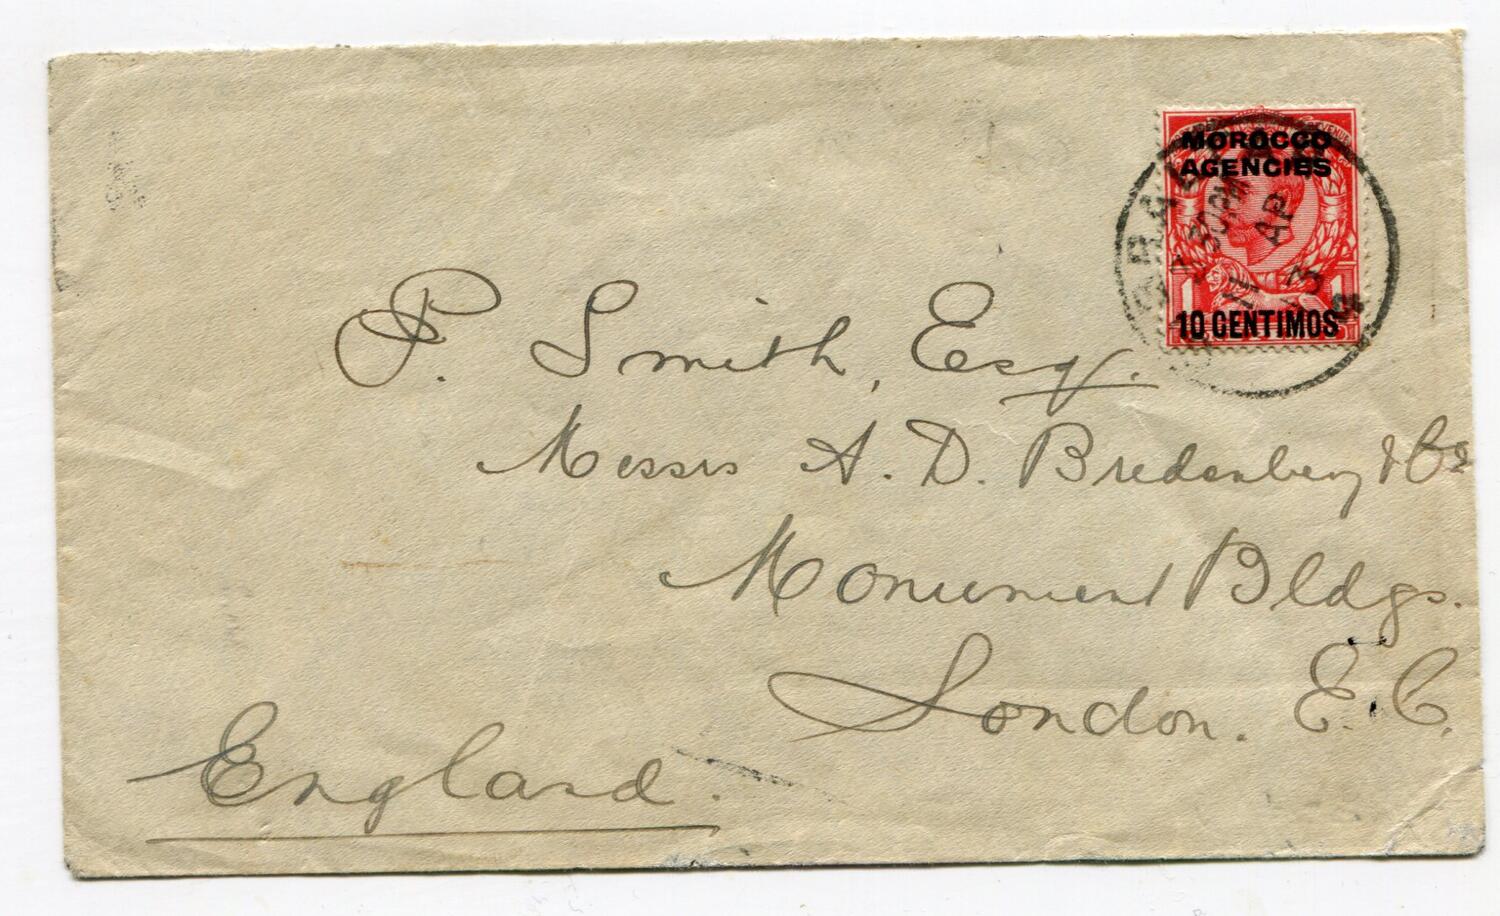 MOROCCO
AGENCIES
7.30PM
11 AP
13
1 1
10 CENTIMOS
P. Smith, Esq.
Messrs A. D. Bredenberg & Co
Monument Bldgs.
London. E. C.
England.